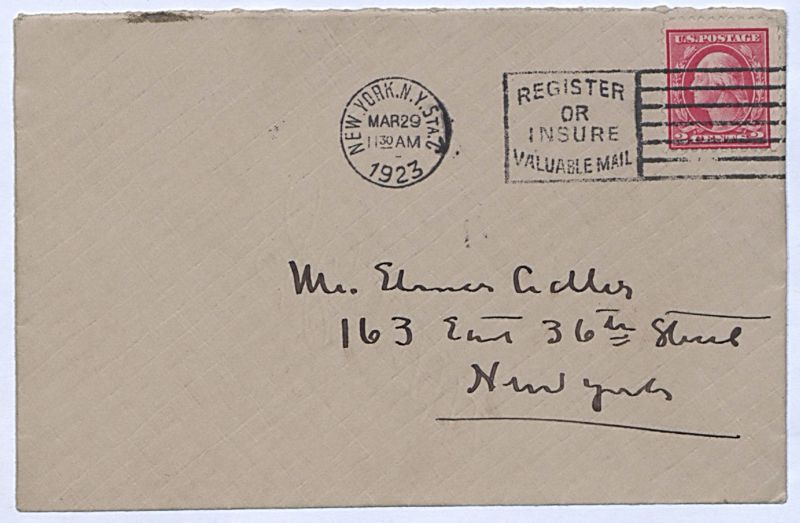 U.S.POSTAGE
2 CENTS 2
NEW YORK, N.Y. STA.
MAR 29
11 30 AM
1923
REGISTER
OR
INSURE
VALUABLE MAIL
Mr. Elmer Adler
163 East 36th Street
New York